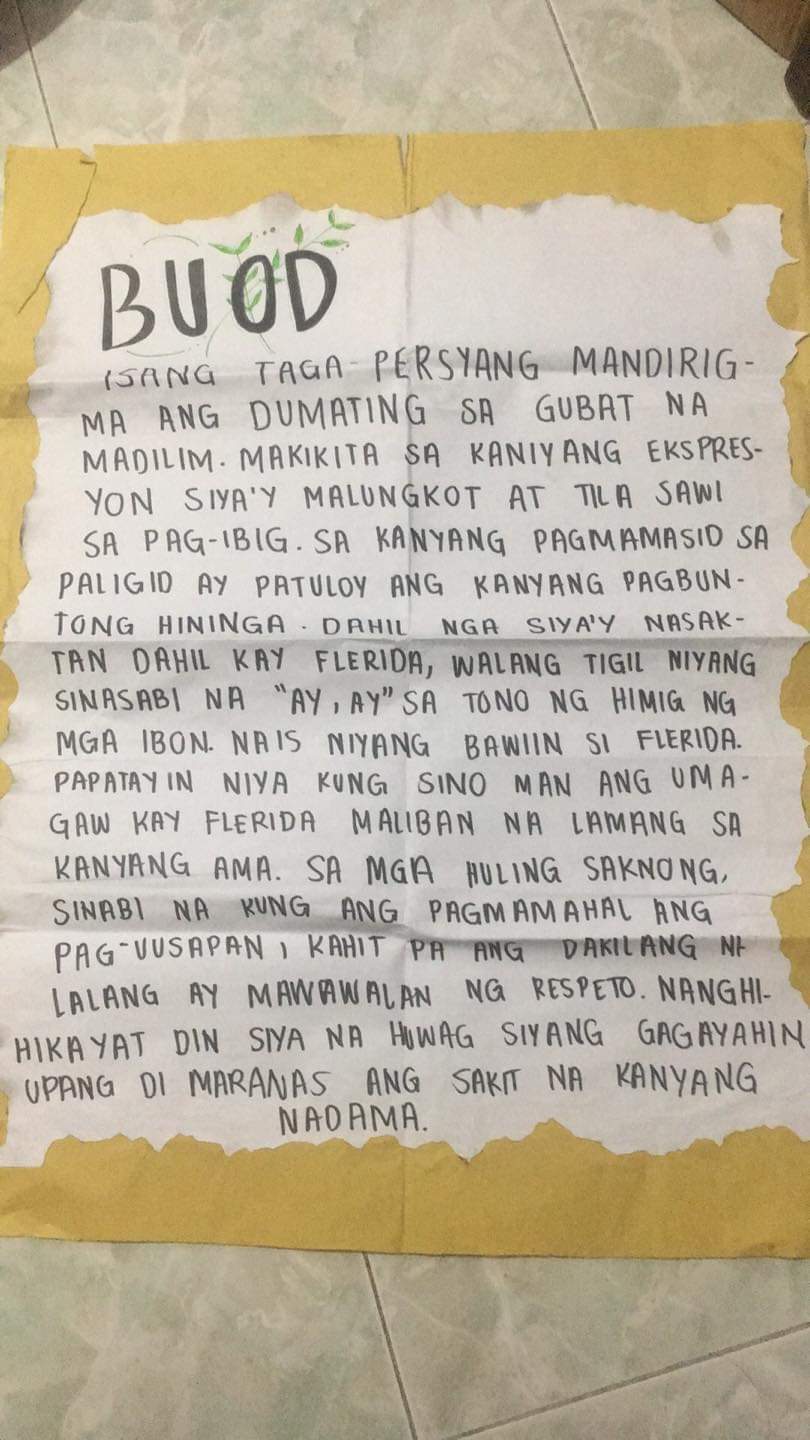 BUOD
ISANG TAGA-PERSYANG MANDIRIG-
MA ANG DUMATING SA GUBAT NA
MADILIM. MAKIKITA SA KANIYANG EKSPRES-
YON SIYA'Y MALUNGKOT AT TILA SAWI
SA PAG-IBIG. SA KANYANG PAGMAMASID SA
PALIGID AY PATULOY ANG KANYANG PAGBUN-
TONG HININGA. DAHIL NGA SIYA'Y NASAK-
TAN DAHIL KAY FLERIDA, WALANG TIGIL NIYANG
SINASABI NA "AY, AY" SA TONO NG HIMIG NG
MGA IBON. NAIS NIYANG BAWIIN SI FLERIDA.
PAPATAYIN NIYA KUNG SINO MAN ANG UMA-
GAW KAY FLERIDA MALIBAN NA LAMANG SA
KANYANG AMA. SA MGA HULING SAKNONG,
SINABI NA KUNG ANG PAGMAMAHAL ANG
PAG-UUSAPAN, KAHIT PA ANG DAKILANG NI
LALANG AY MAWAWALAN NG RESPETO. NANGHI-
HIKAYAT DIN SIYA NA HUWAG SIYANG GAGAYAHIN
UPANG DI MARANAS ANG SAKIT NA KANYANG
NADAMA.